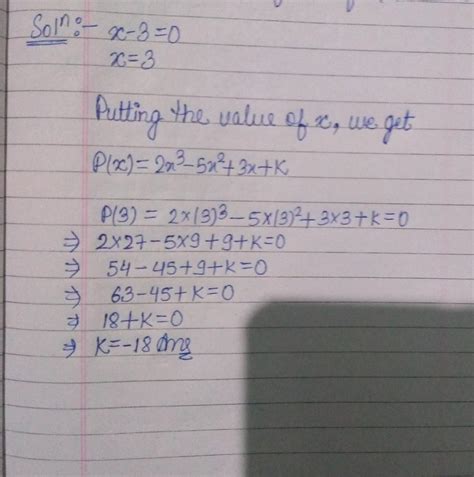 Solⁿ:- x-3=0
x=3
Putting the value of x, we get
P(x)= 2x³-5x²+3x+K
P(3) = 2×(3)³-5×(3)²+3×3+K=0
⇒ 2×27-5×9+9+K=0
⇒ 54-45+9+K=0
⇒ 63-45+K=0
⇒ 18+K=0
⇒ K=-18 Ans